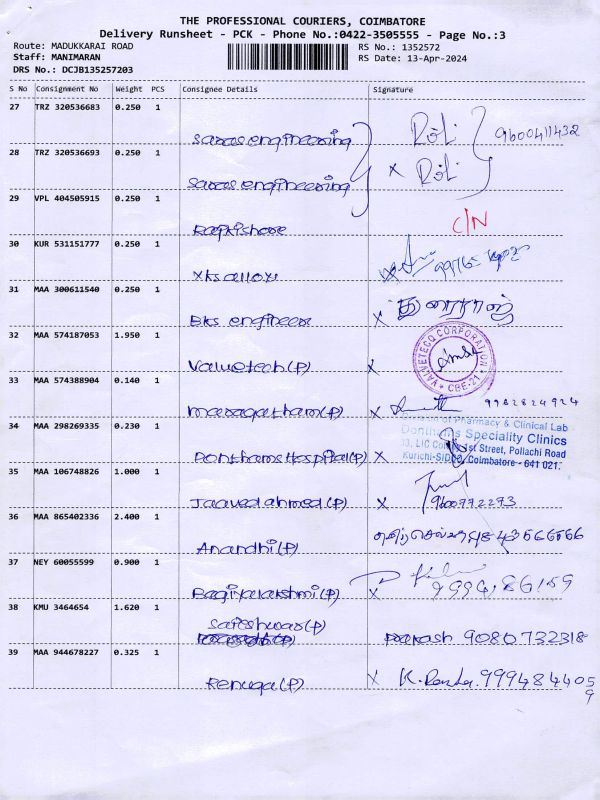 THE PROFESSIONAL COURIERS, COIMBATORE
Delivery Runsheet - PCK - Phone No.:0422-3505555 - Page No.:3
Route: MADUKKARAI ROAD
RS No.: 1352572
Staff: MANIMARAN
RS Date: 13-Apr-2024
DRS No.: DCJB135257203
S No Consignment No Weight PCS Consignee Details Signature
27 TRZ 320536683 0.250 1
saras engineering 9600411432
28 TRZ 320536693 0.250 1
saras engineering x
29 VPL 404505915 0.250 1
Rajkishore C/N
30 KUR 531151777 0.250 1
xks alloys
31 MAA 300611540 0.250 1
Bks engineers x
32 MAA 574187053 1.950 1
Valuetech(P) x
VALVETECQ CORPORATION
CBE-21
33 MAA 574388904 0.140 1
maragatham(P) x 9982824924
34 MAA 298269335 0.230 1
of Pharmacy & Clinical Lab
Speciality Clinics
1st Street, Pollachi Road
Donthams Hospital(P) x Kurichi-SIDCO, Coimbatore - 641 021.
35 MAA 106748826 1.000 1
Jaaved ahmed(P) x 9600772273
36 MAA 865402336 2.400 1
Anandhi(P)
37 NEY 60055599 0.900 1
Bagiyalakshmi(P) x
38 KMU 3464654 1.620 1
sateshwar(P)
prakash 9080732318
39 MAA 944678227 0.325 1
Renuga(P) x 9994844059